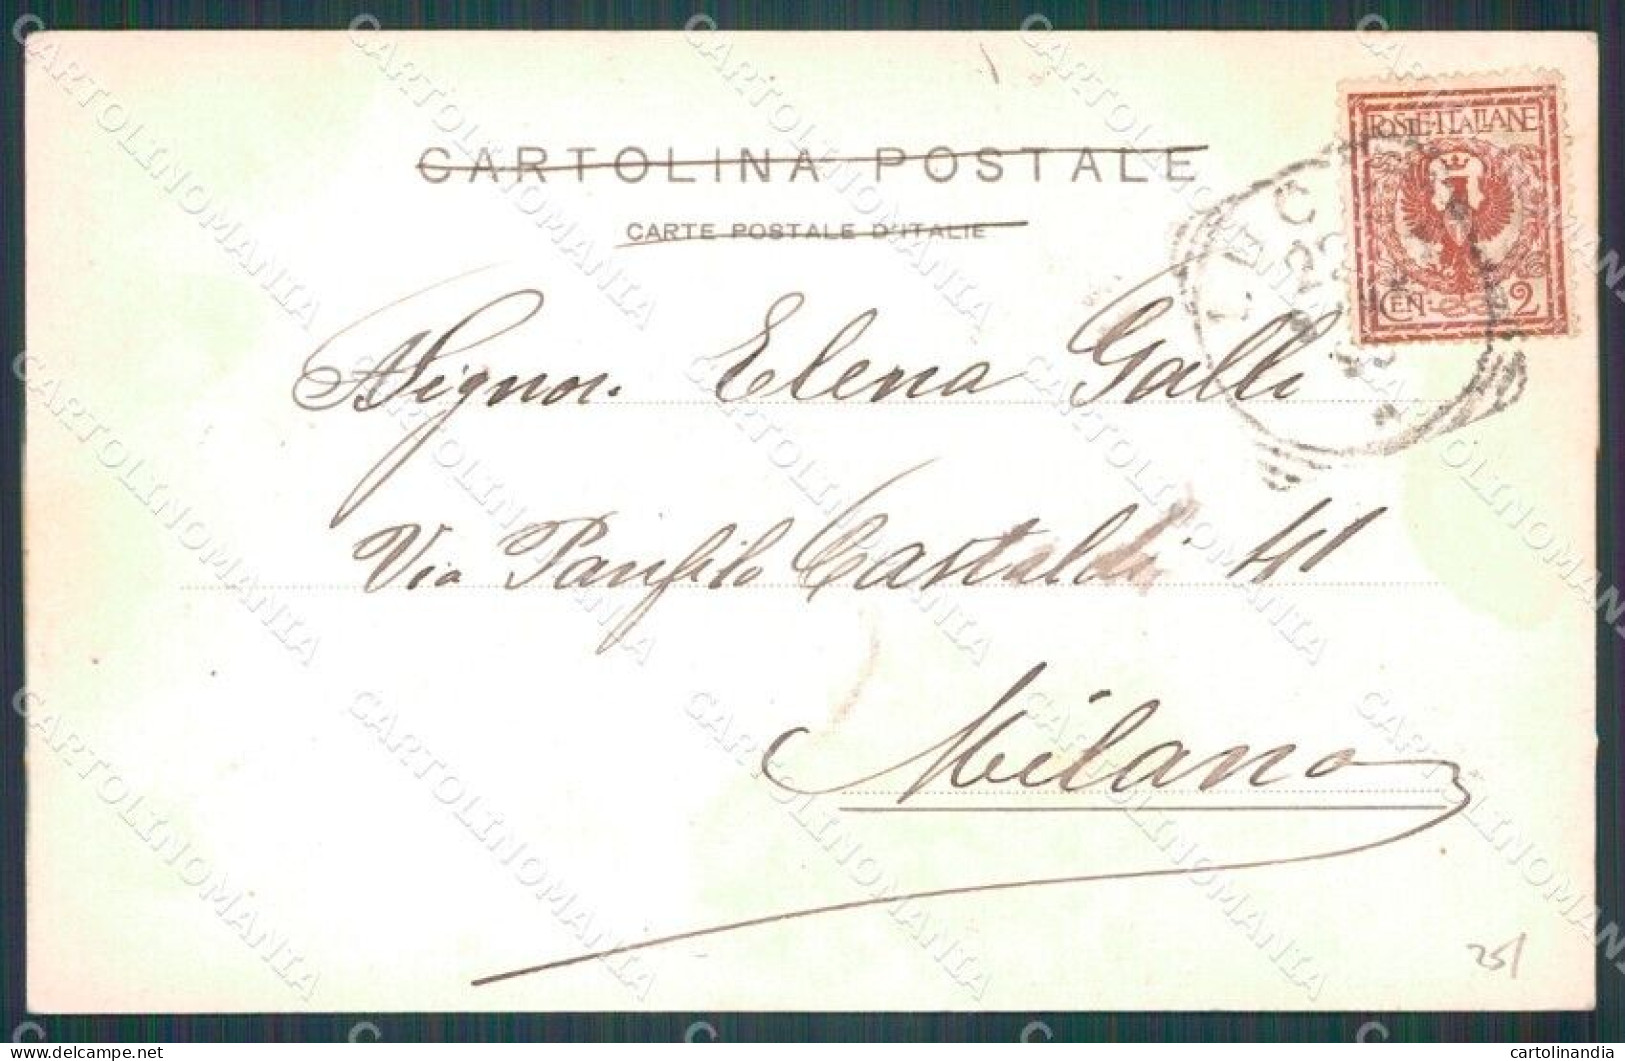 CARTOLINA POSTALE
CARTE POSTALE D'ITALIE
POSTE·ITALIANE
CEN 2
LECCO
Signor. Elena Galli
Via Panfilo Castaldi 41
Milano
25/
CARTOLINOMANIA
delcampe.net
cartolinandia